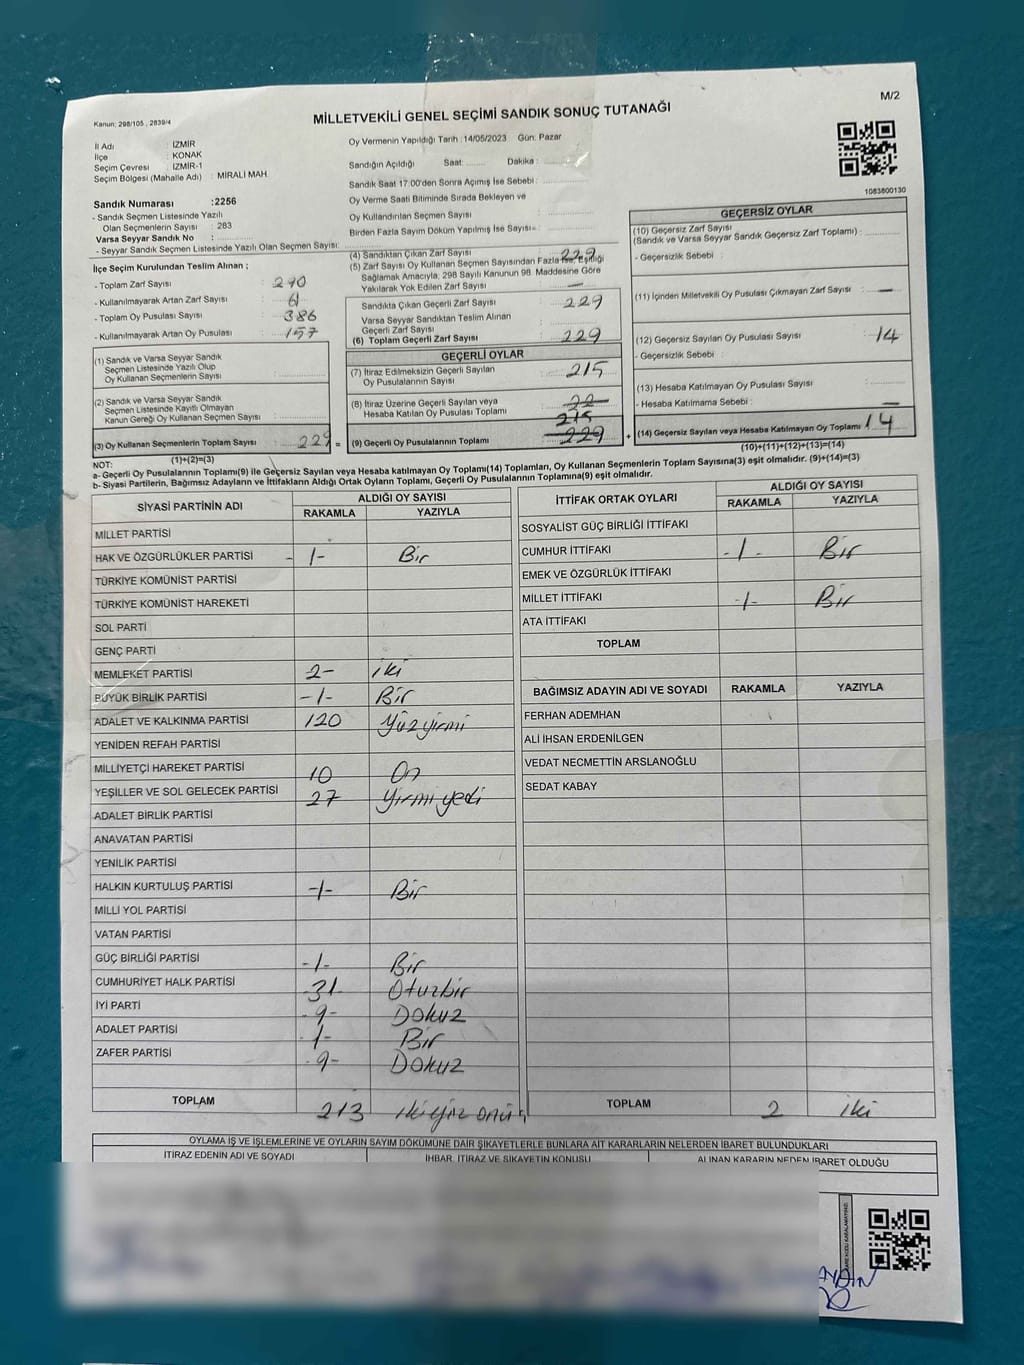 M/2
MİLLETVEKİLİ GENEL SEÇİMİ SANDIK SONUÇ TUTANAĞI
Kanun: 298/105 , 2839/4
İl Adı : İZMİR
İlçe : KONAK
Seçim Çevresi : İZMİR-1
Seçim Bölgesi (Mahalle Adı) : MİRALİ MAH.
Sandık Numarası :2256
- Sandık Seçmen Listesinde Yazılı
Olan Seçmenlerin Sayısı : 283
Varsa Seyyar Sandık No :
- Seyyar Sandık Seçmen Listesinde Yazılı Olan Seçmen Sayısı:
Oy Vermenin Yapıldığı Tarih :14/05/2023 Gün: Pazar
Sandığın Açıldığı Saat: Dakika :
Sandık Saat 17:00'den Sonra Açımış İse Sebebi :
Oy Verme Saati Bitiminde Sırada Bekleyen ve
Oy Kullandırılan Seçmen Sayısı :
Birden Fazla Sayım Döküm Yapılmış İse Sayısı :
1083800130
İlçe Seçim Kurulundan Teslim Alınan ;
- Toplam Zarf Sayısı : 290
- Kullanılmayarak Artan Zarf Sayısı : 61
- Toplam Oy Pusulası Sayısı : 386
- Kullanılmayarak Artan Oy Pusulası : 157
(1) Sandık ve Varsa Seyyar Sandık
Seçmen Listesinde Yazılı Olup
Oy Kullanan Seçmenlerin Sayısı :
(2) Sandık ve Varsa Seyyar Sandık
Seçmen Listesinde Kayıtlı Olmayan
Kanun Gereği Oy Kullanan Seçmen Sayısı :
(3) Oy Kullanan Seçmenlerin Toplam Sayısı : 229 =
(1)+(2)=(3)
(4) Sandıktan Çıkan Zarf Sayısı : 229
(5) Zarf Sayısı Oy Kullanan Seçmen Sayısından Fazla İse, Eşitliği
Sağlamak Amacıyla, 298 Sayılı Kanunun 98. Maddesine Göre
Yakılarak Yok Edilen Zarf Sayısı : —
Sandıkta Çıkan Geçerli Zarf Sayısı : 229
Varsa Seyyar Sandıktan Teslim Alınan
Geçerli Zarf Sayısı :
(6) Toplam Geçerli Zarf Sayısı : 229
GEÇERLİ OYLAR
(7) İtiraz Edilmeksizin Geçerli Sayılan
Oy Pusulalarının Sayısı : 215
(8) İtiraz Üzerine Geçerli Sayılan veya
Hesaba Katılan Oy Pusulası Toplamı : 22
215
(9) Geçerli Oy Pusulalarının Toplamı 229 +
GEÇERSİZ OYLAR
(10) Geçersiz Zarf Sayısı
(Sandık ve Varsa Seyyar Sandık Geçersiz Zarf Toplamı) :
- Geçersizlik Sebebi :
(11) İçinden Milletvekili Oy Pusulası Çıkmayan Zarf Sayısı : —
(12) Geçersiz Sayılan Oy Pusulası Sayısı : 14
- Geçersizlik Sebebi :
(13) Hesaba Katılmayan Oy Pusulası Sayısı :
- Hesaba Katılmama Sebebi : —
(14) Geçersiz Sayılan veya Hesaba Katılmayan Oy Toplamı 14
(10)+(11)+(12)+(13)=(14)
NOT:
a- Geçerli Oy Pusulalarının Toplamı(9) ile Geçersiz Sayılan veya Hesaba katılmayan Oy Toplamı(14) Toplamları, Oy Kullanan Seçmenlerin Toplam Sayısına(3) eşit olmalıdır. (9)+(14)=(3)
b- Siyasi Partilerin, Bağımsız Adayların ve İttifakların Aldığı Ortak Oyların Toplamı, Geçerli Oy Pusulalarının Toplamına(9) eşit olmalıdır.
SİYASİ PARTİNİN ADI ALDIĞI OY SAYISI
RAKAMLA YAZIYLA
MİLLET PARTİSİ
HAK VE ÖZGÜRLÜKLER PARTİSİ -1- Bir
TÜRKİYE KOMÜNİST PARTİSİ
TÜRKİYE KOMÜNİST HAREKETİ
SOL PARTİ
GENÇ PARTİ
MEMLEKET PARTİSİ 2- iki
BÜYÜK BİRLİK PARTİSİ -1- Bir
ADALET VE KALKINMA PARTİSİ 120 Yüzyirmi
YENİDEN REFAH PARTİSİ
MİLLİYETÇİ HAREKET PARTİSİ 10 On
YEŞİLLER VE SOL GELECEK PARTİSİ 27 Yirmiyedi
ADALET BİRLİK PARTİSİ
ANAVATAN PARTİSİ
YENİLİK PARTİSİ
HALKIN KURTULUŞ PARTİSİ -1- Bir
MİLLİ YOL PARTİSİ
VATAN PARTİSİ
GÜÇ BİRLİĞİ PARTİSİ -1- Bir
CUMHURİYET HALK PARTİSİ -31- Otuzbir
İYİ PARTİ -9- Dokuz
ADALET PARTİSİ -1- Bir
ZAFER PARTİSİ -9- Dokuz
TOPLAM 213 ikiyüz onüç
İTTİFAK ORTAK OYLARI ALDIĞI OY SAYISI
RAKAMLA YAZIYLA
SOSYALİST GÜÇ BİRLİĞİ İTTİFAKI
CUMHUR İTTİFAKI -1- Bir
EMEK VE ÖZGÜRLÜK İTTİFAKI
MİLLET İTTİFAKI -1- Bir
ATA İTTİFAKI
TOPLAM
BAĞIMSIZ ADAYIN ADI VE SOYADI RAKAMLA YAZIYLA
FERHAN ADEMHAN
ALİ İHSAN ERDENİLGEN
VEDAT NECMETTİN ARSLANOĞLU
SEDAT KABAY
TOPLAM 2 iki
OYLAMA İŞ VE İŞLEMLERİNE VE OYLARIN SAYIM DÖKÜMÜNE DAİR ŞİKAYETLERLE BUNLARA AİT KARARLARIN NELERDEN İBARET BULUNDUKLARI
İTİRAZ EDENİN ADI VE SOYADI İHBAR, İTİRAZ VE ŞİKAYETİN KONUSU ALINAN KARARIN NEDEN İBARET OLDUĞU